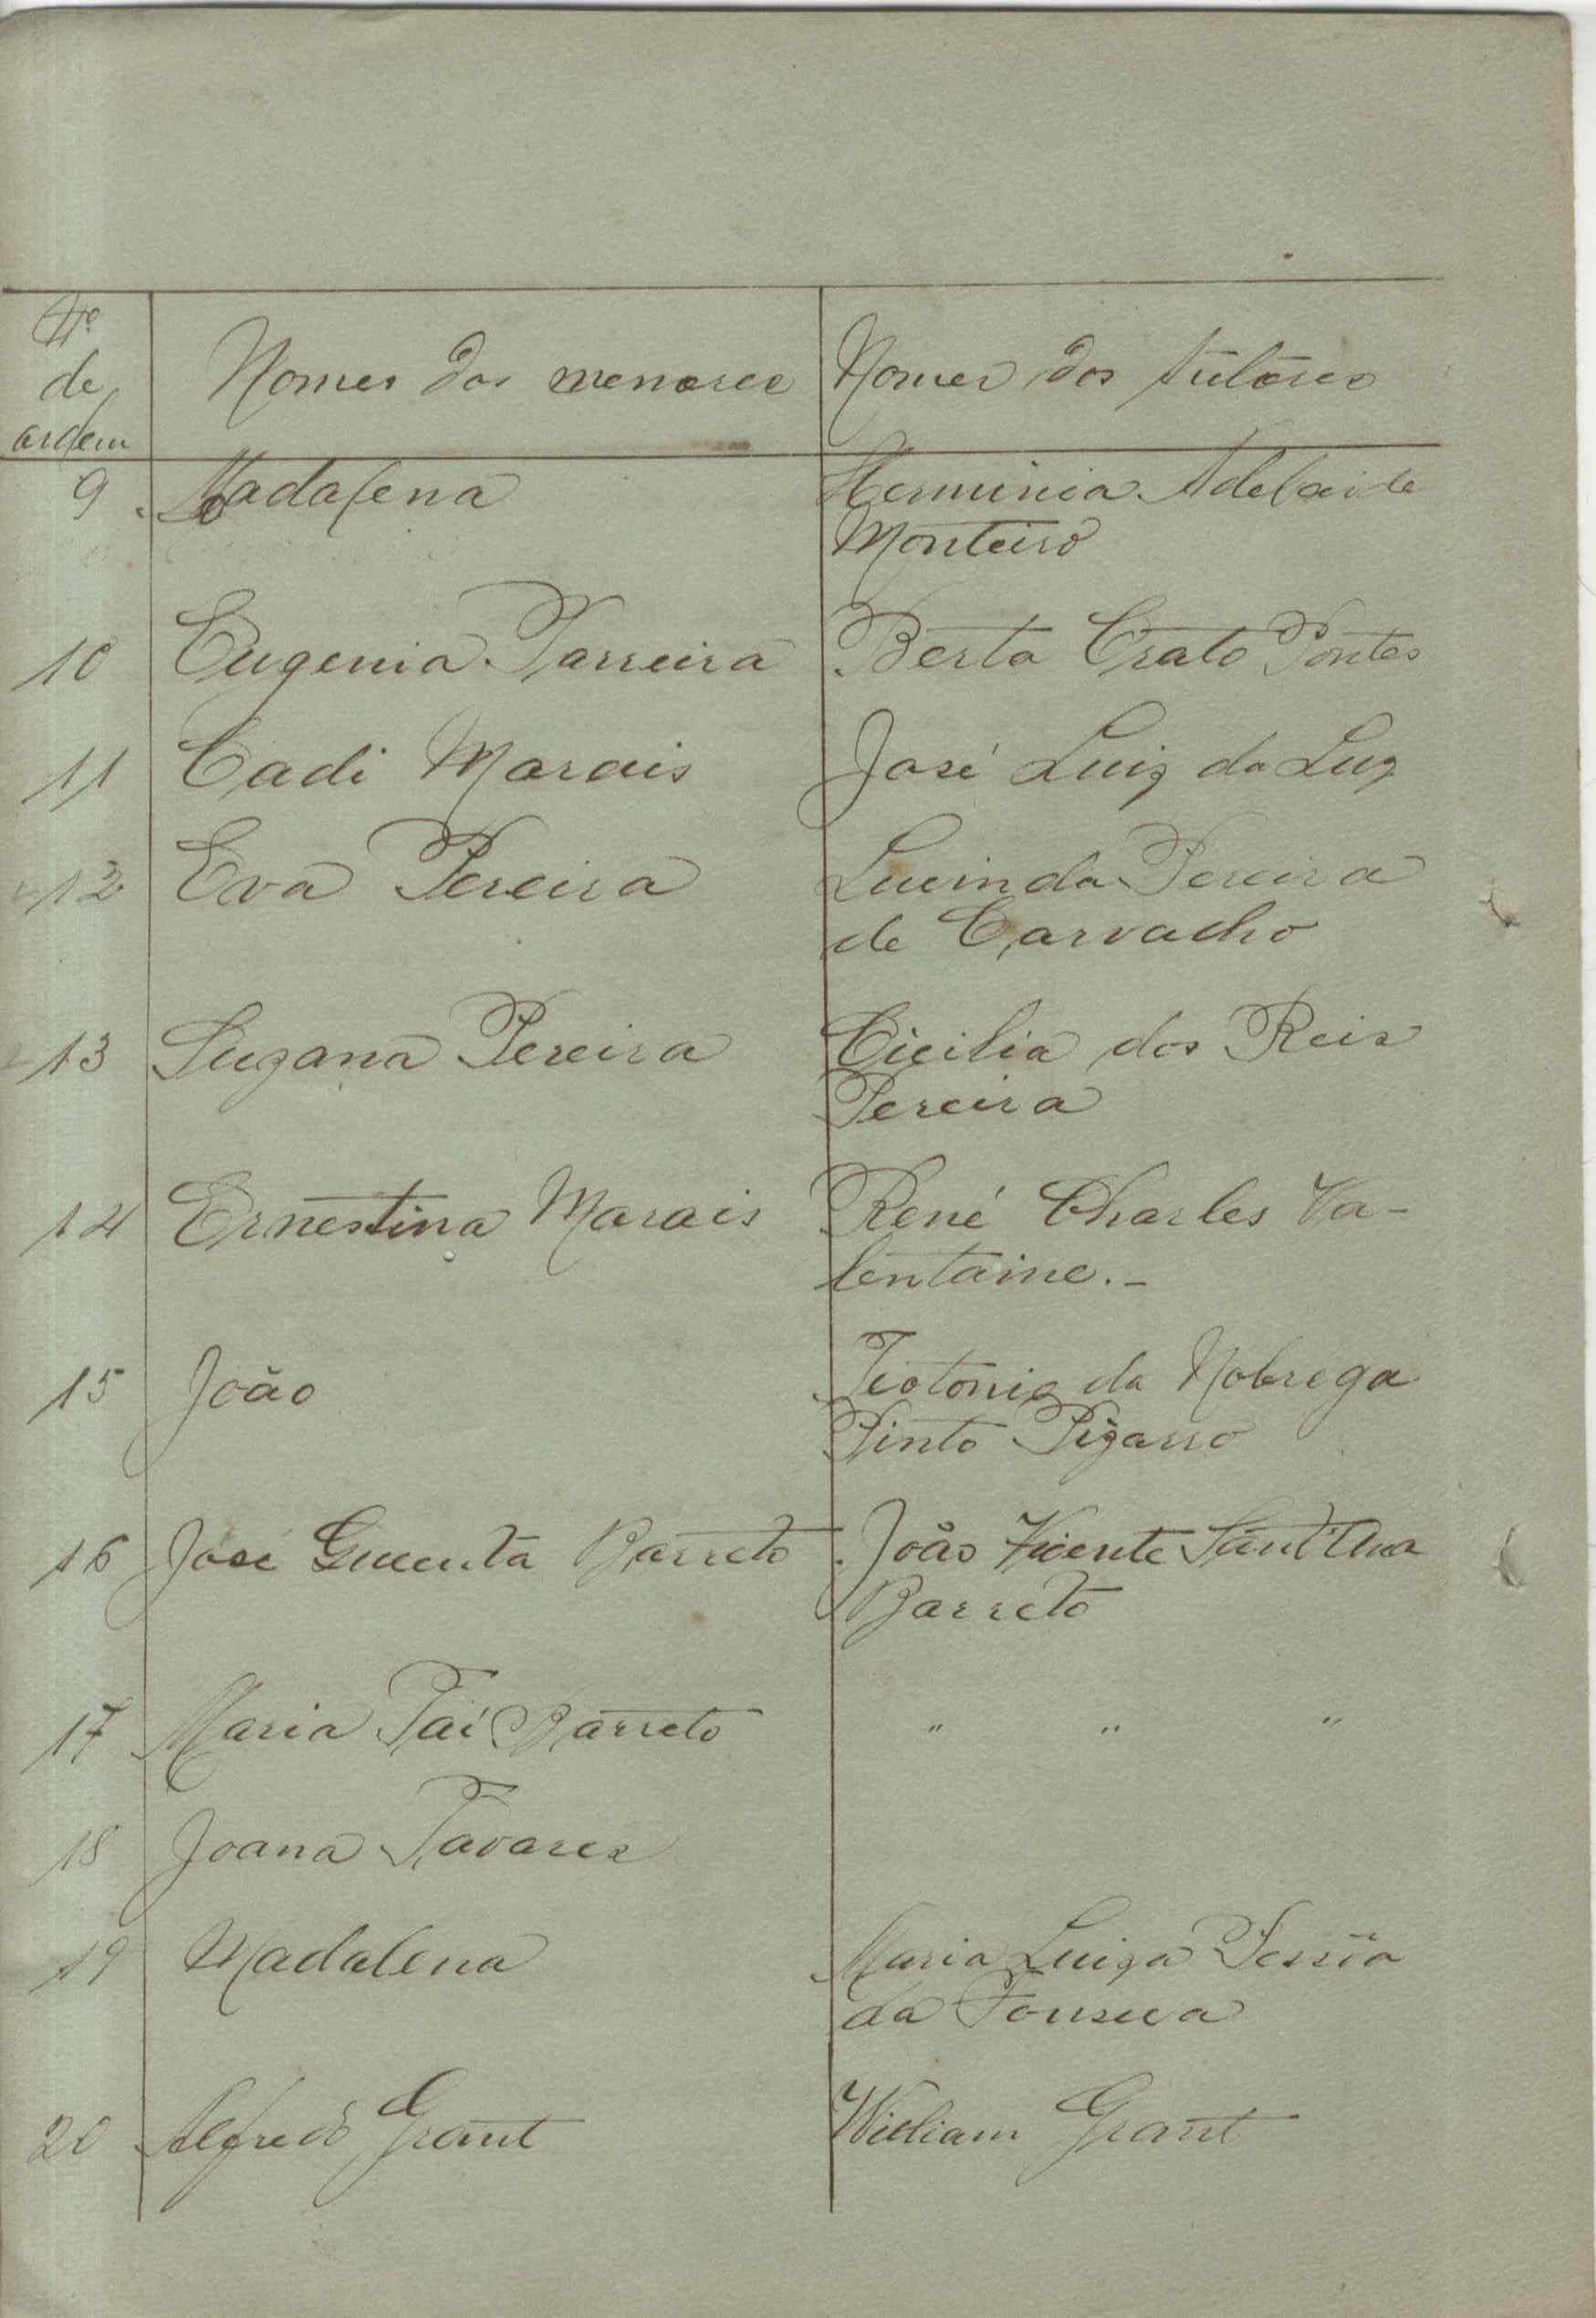 Nº
de
ordem
Nomes dos menores
Nomes dos tutores
9 Madalena
Herminia Adelaide
Monteiro
10 Eugenia Parreira
Berta Crato Pontes
11 Cadi Morais
José Luiz da Luz
12 Eva Pereira
Lucinda Pereira
de Carvalho
13 Suzana Pereira
Cicilia dos Reis
Pereira
14 Ernestina Marais
René Charles Va-
lentaine.-
15 João
Teotonio da Nobrega
Pinto Pizarro
16 José Barreto
João Vicente Sant'Ana
Barreto
17 Maria Barreto
" " "
18 Joana Tavares
19 Madalena
Maria Luiza
da Fonseca
20 Alfredo Grant
William Grant